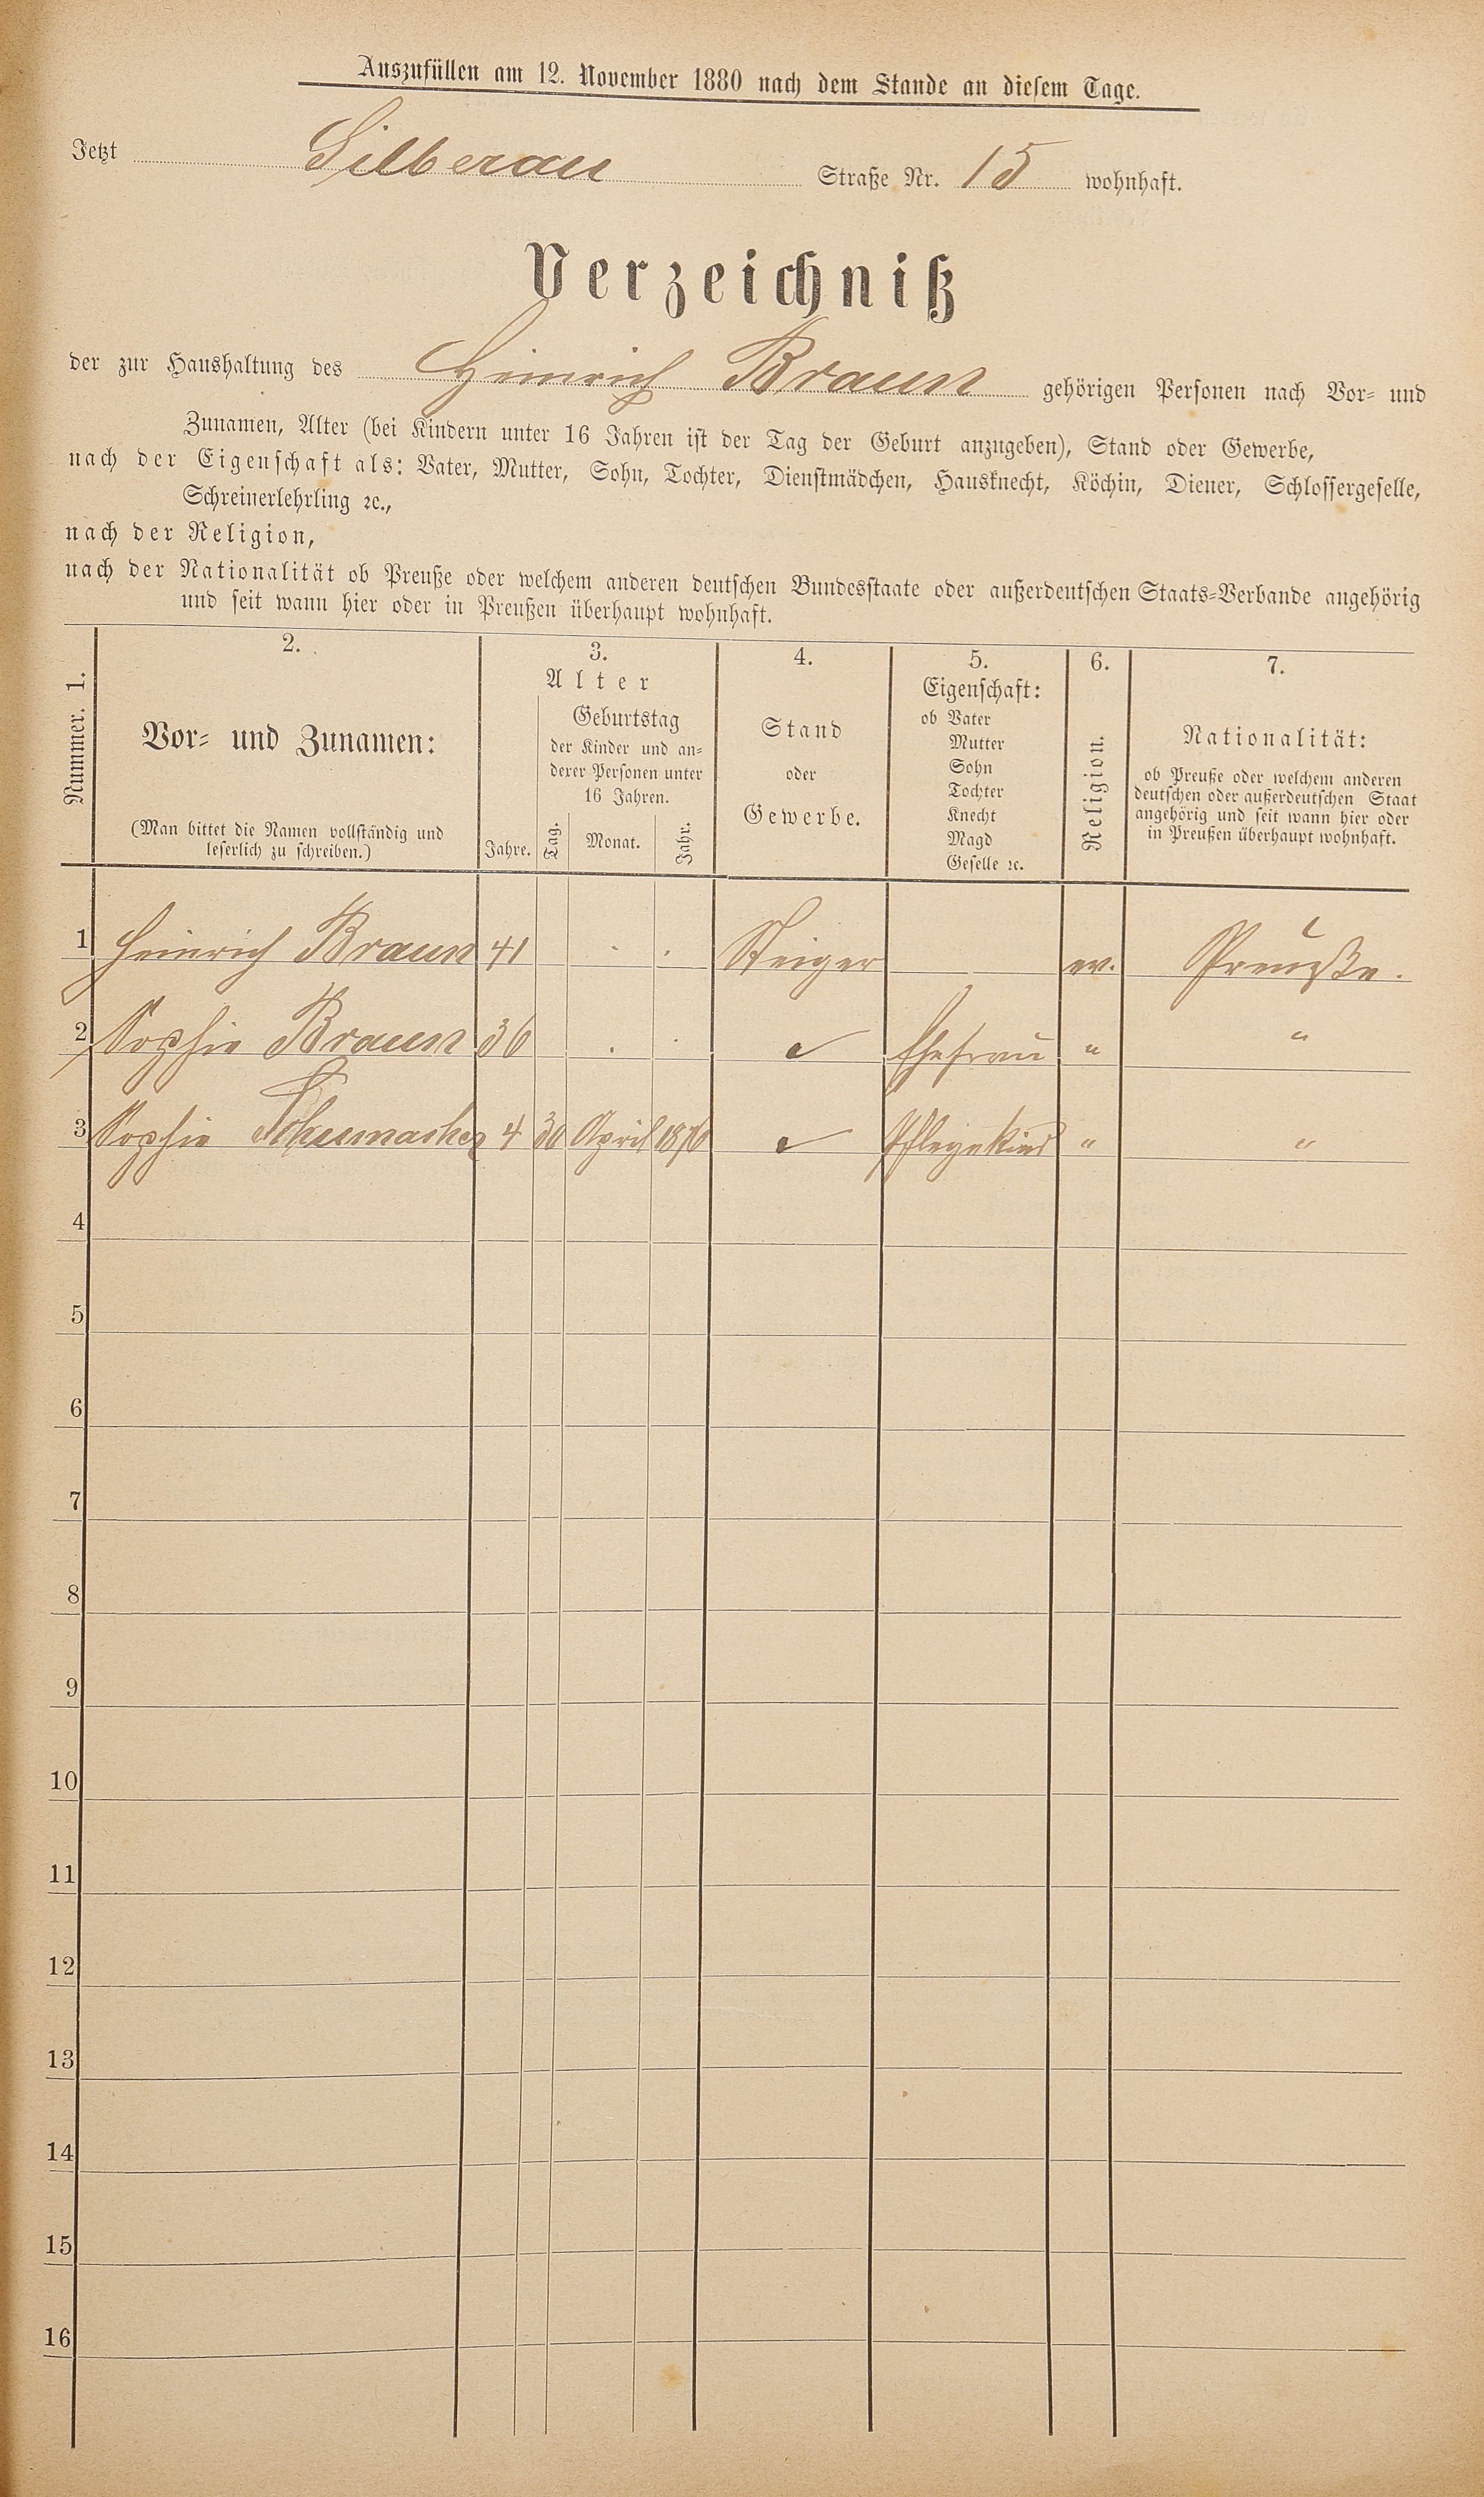 Auszufüllen am 12. November 1880 nach dem Stande an diesem Tage.
Jetzt Silberau Straße Nr. 15 wohnhaft.
Verzeichniß
der zur Haushaltung des Heinrich Braun gehörigen Personen nach Vor- und
Zunamen, Alter (bei Kindern unter 16 Jahren ist der Tag der Geburt anzugeben), Stand oder Gewerbe,
nach der Eigenschaft als: Vater, Mutter, Sohn, Tochter, Dienstmädchen, Hausknecht, Köchin, Diener, Schlossergeselle,
Schreinerlehrling ꝛc.,
nach der Religion,
nach der Nationalität ob Preuße oder welchem anderen deutschen Bundesstaate oder außerdeutschen Staats-Verbande angehörig
und seit wann hier oder in Preußen überhaupt wohnhaft.
Nummer. 1.
2.
Vor- und Zunamen:
(Man bittet die Namen vollständig und
leserlich zu schreiben.)
3.
Alter
Geburtstag
der Kinder und an-
derer Personen unter
16 Jahren.
Jahre. Tag. Monat. Jahr.
4.
Stand
oder
Gewerbe.
5.
Eigenschaft:
ob Vater
Mutter
Sohn
Tochter
Knecht
Magd
Geselle ꝛc.
6.
Religion.
7.
Nationalität:
ob Preuße oder welchem anderen
deutschen oder außerdeutschen Staat
angehörig und seit wann hier oder
in Preußen überhaupt wohnhaft.
1 Heinrich Braun 41 Steiger ev. Preuße.
2 Sophie Braun 36 Ehefrau " "
3 Sophie Schumacher 4 30 April 1876 Pflegekind " "
4
5
6
7
8
9
10
11
12
13
14
15
16